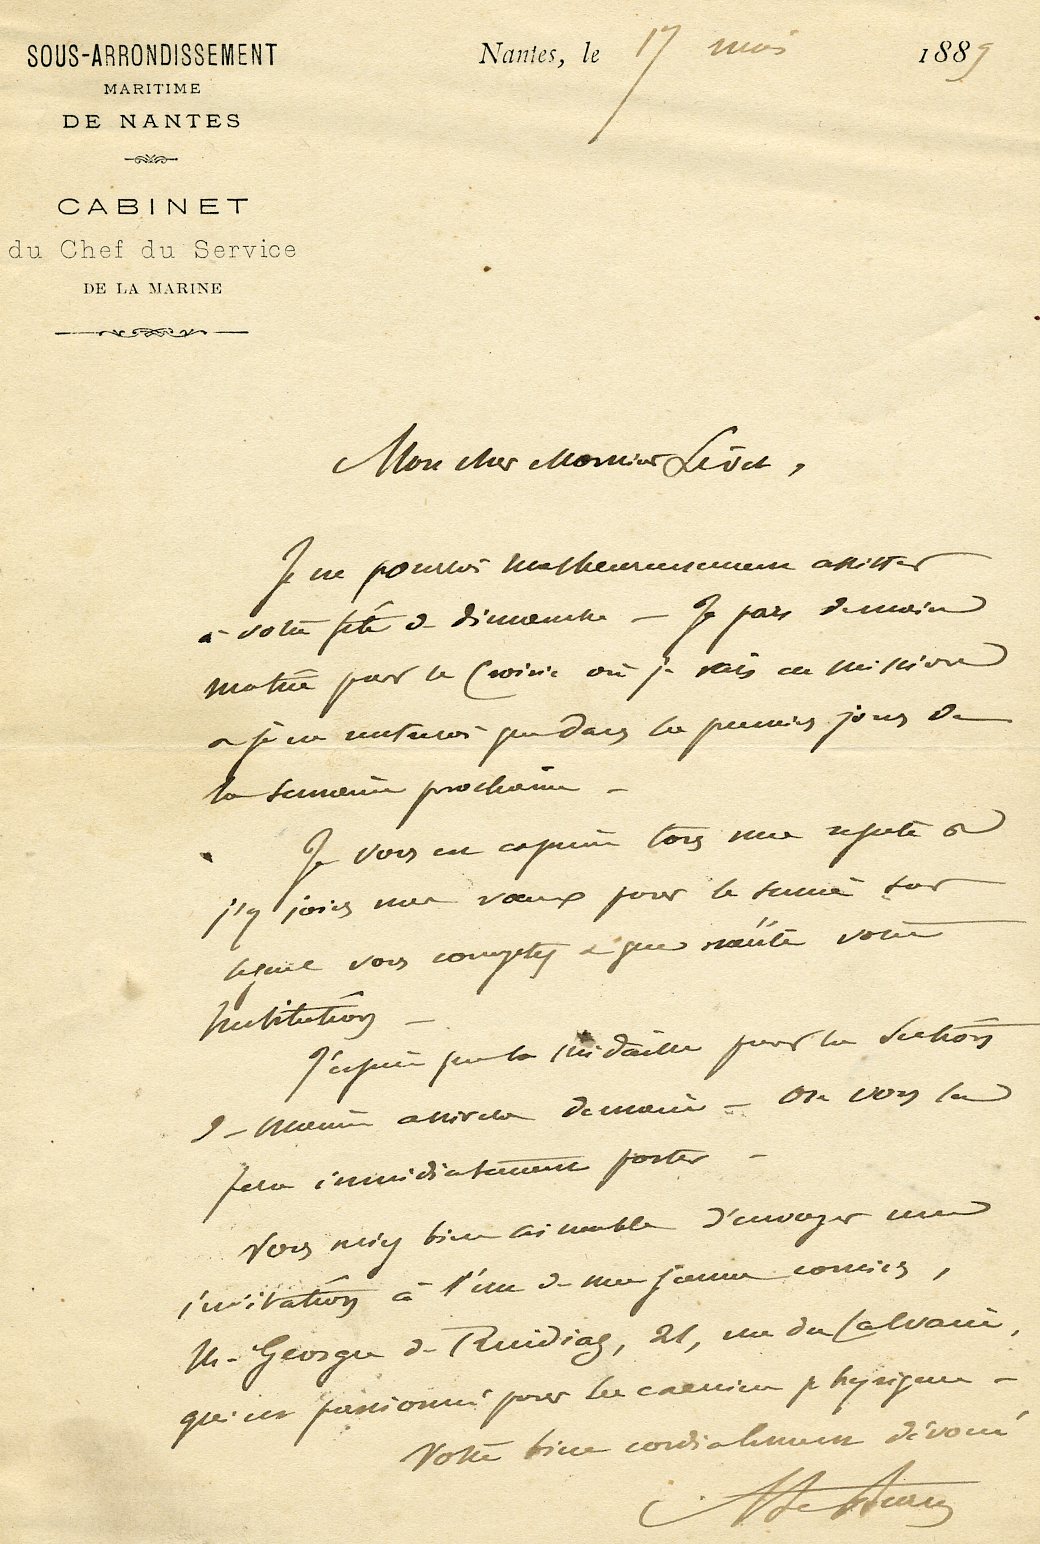 SOUS-ARRONDISSEMENT
MARITIME
DE NANTES
CABINET
du Chef du Service
DE LA MARINE
Nantes, le 17 mai 1889
Mon cher Monsieur Livet,
Je ne pourrai malheureusement assister
à votre fête de dimanche — Je pars demain
matin pour le Croisic où je vais en mission
et je ne rentrerai que dans les premiers jours de
la semaine prochaine —
Je vous en exprime tous mes regrets et
j'y joins mes vœux pour le succès sur
lequel vous comptez et que mérite votre
Institution —
J'espère que la médaille pour la Section
de marine arrivera demain — On vous la
fera immédiatement porter —
Vous seriez bien aimable d'envoyer une
invitation à l'un de mes jeunes commis,
M. Georges de 21, rue du Calvaire,
qui est passionné pour les exercices physiques —
Votre bien cordialement dévoué